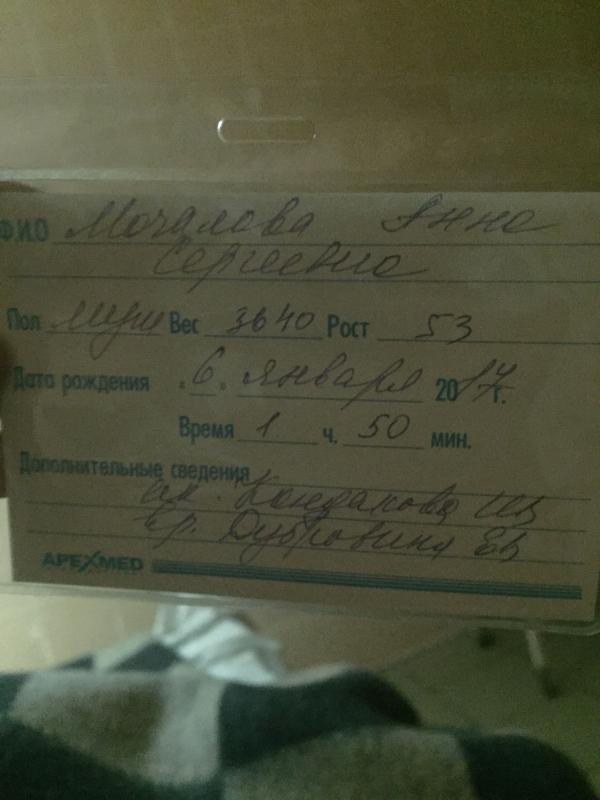 Ф.И.О Мочалова Анна
Сергеевна
Пол муж Вес 3640 Рост 53
Дата рождения "6" января 2017г.
Время 1 ч. 50 мин.
Дополнительные сведения
ак. Кондакова
вр. Дубровина ЕВ
APEXMED